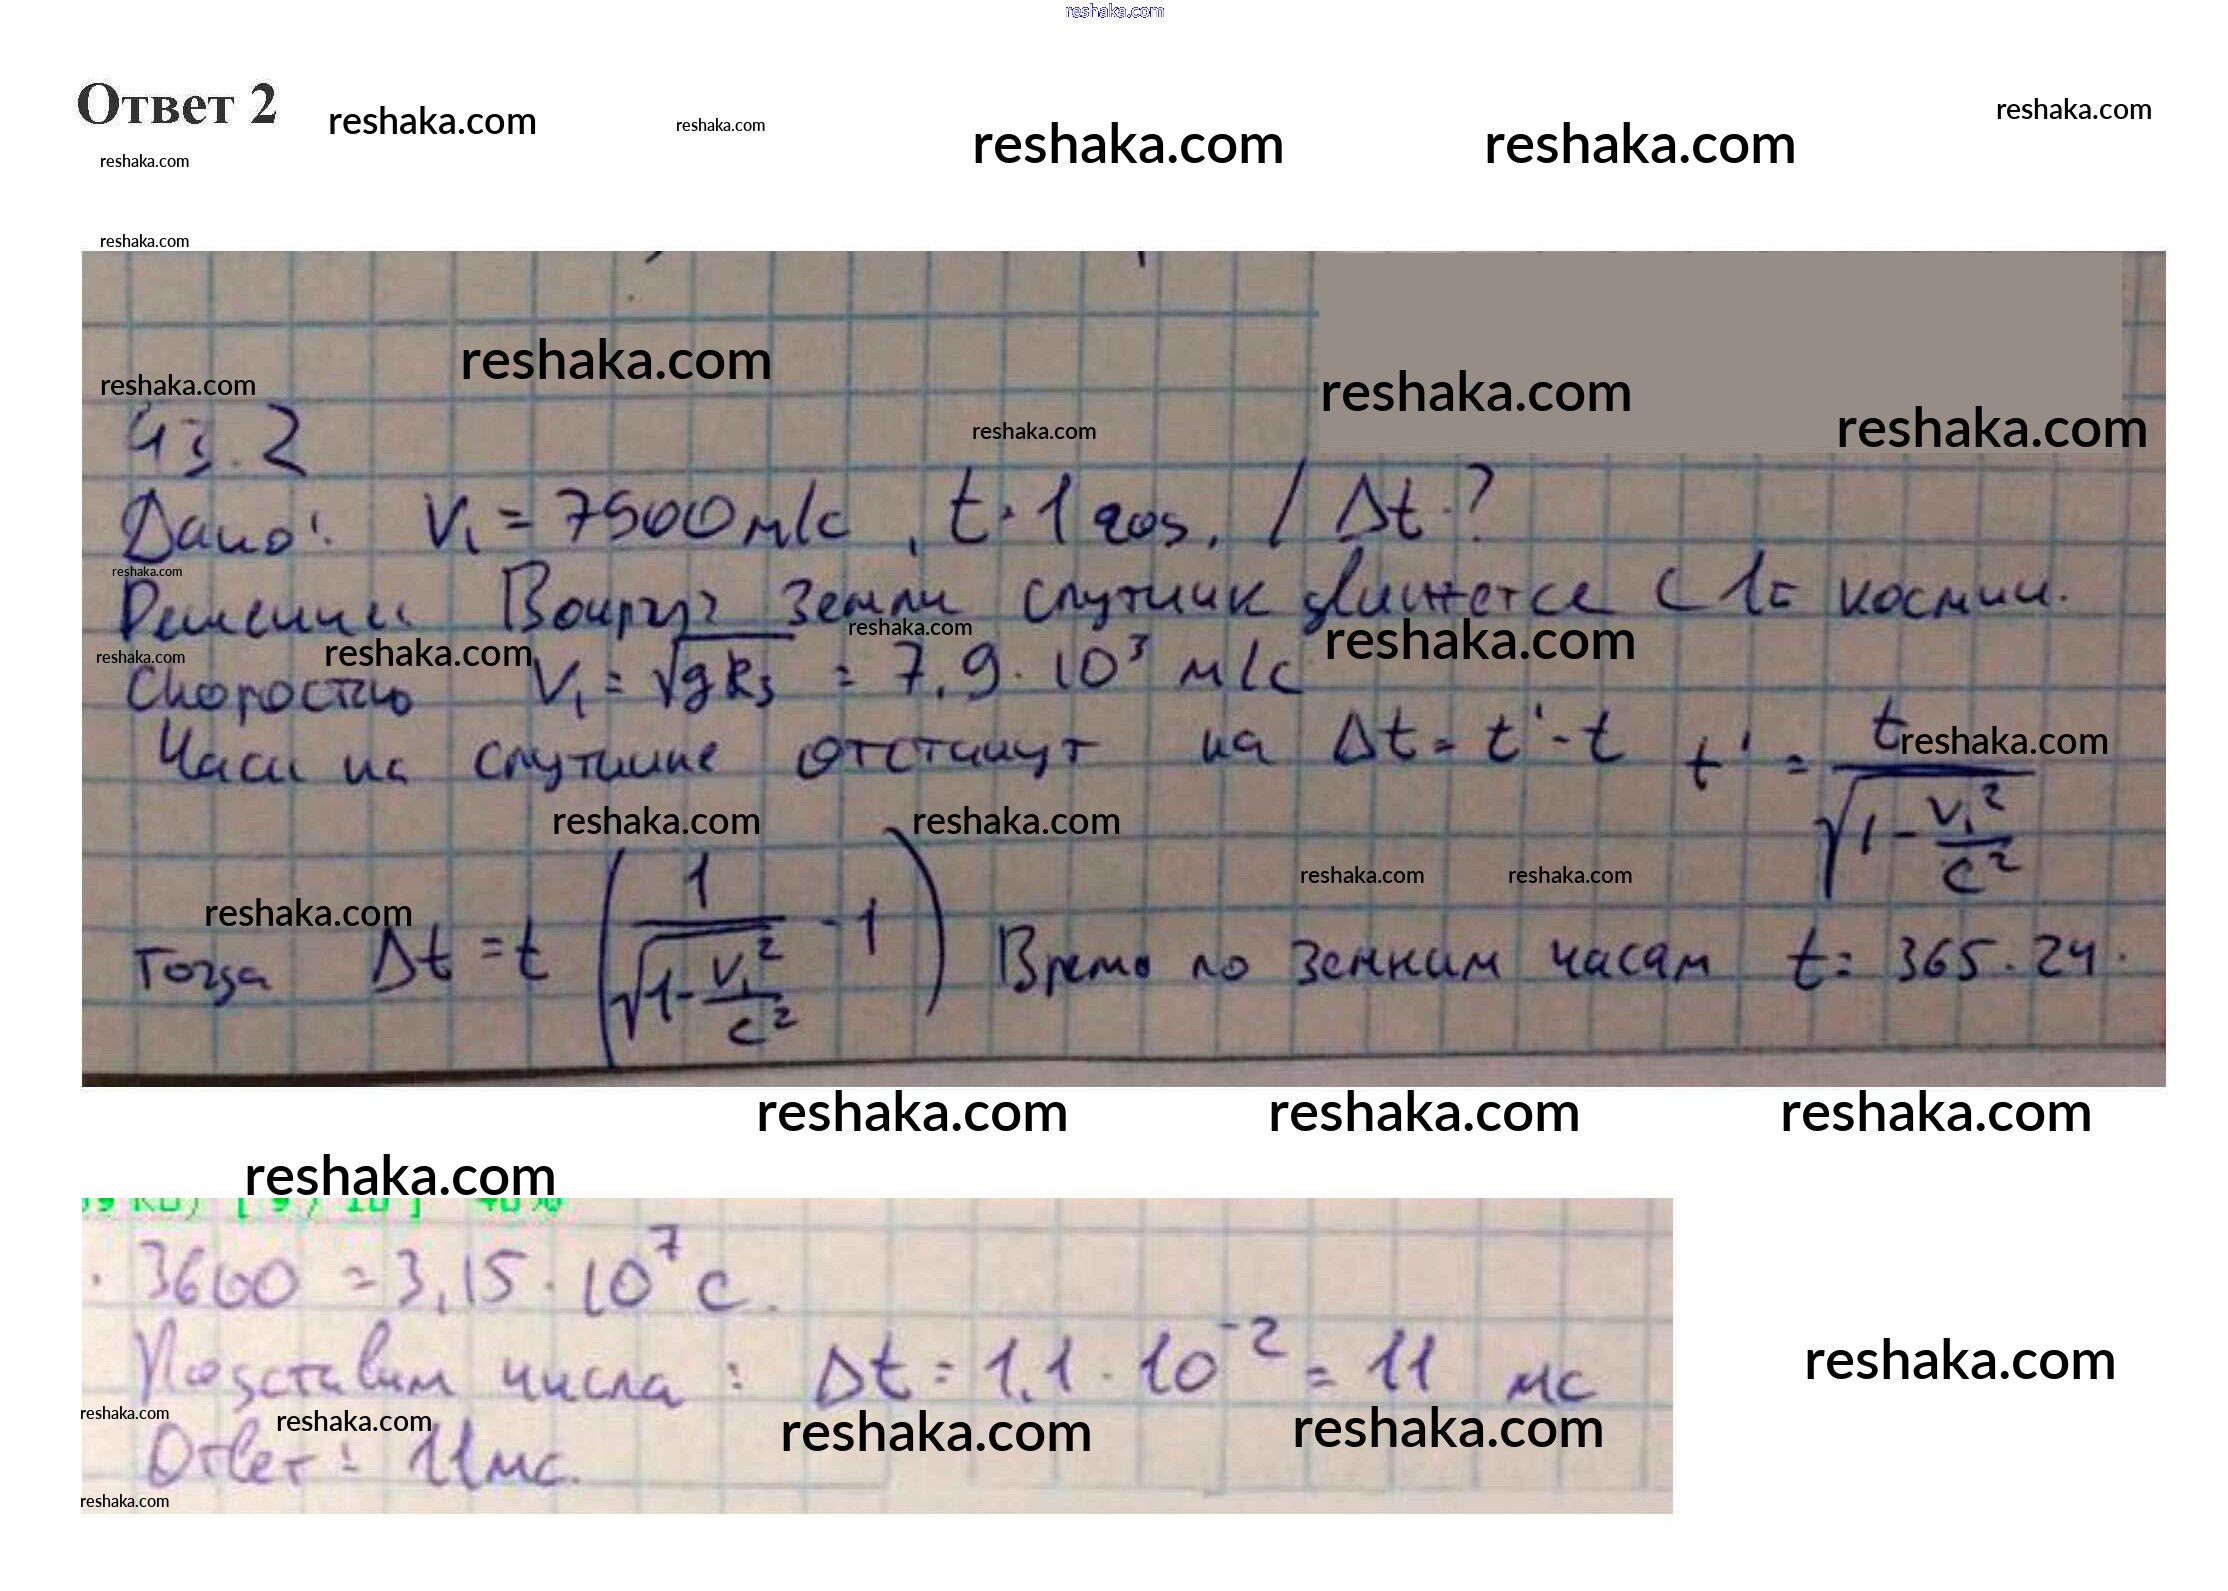 reshaka.com
Ответ 2
reshaka.com reshaka.com reshaka.com reshaka.com reshaka.com
reshaka.com
reshaka.com
reshaka.com reshaka.com reshaka.com
reshaka.com reshaka.com
43.2
Дано: V₁ = 7900 м/с, t = 1 год. / Δt - ?
reshaka.com
Решение: Вокруг Земли спутник движется с 1й космич.
reshaka.com reshaka.com reshaka.com reshaka.com
Скоростью V₁ = √gRз = 7,9 · 10³ м/с
Часы на спутнике отстанут на Δt = t' - t t' = t / √(1 - V₁²/c²)
reshaka.com
reshaka.com reshaka.com
reshaka.com reshaka.com reshaka.com
тогда Δt = t (1 / √(1 - V₁²/c²) - 1) Время по земным часам t = 365 · 24 ·
reshaka.com reshaka.com reshaka.com
reshaka.com
· 3600 = 3,15 · 10⁷ с.
Подставим числа: Δt = 1,1 · 10⁻² = 11 мс
reshaka.com
reshaka.com reshaka.com reshaka.com reshaka.com
Ответ: 11 мс.
reshaka.com